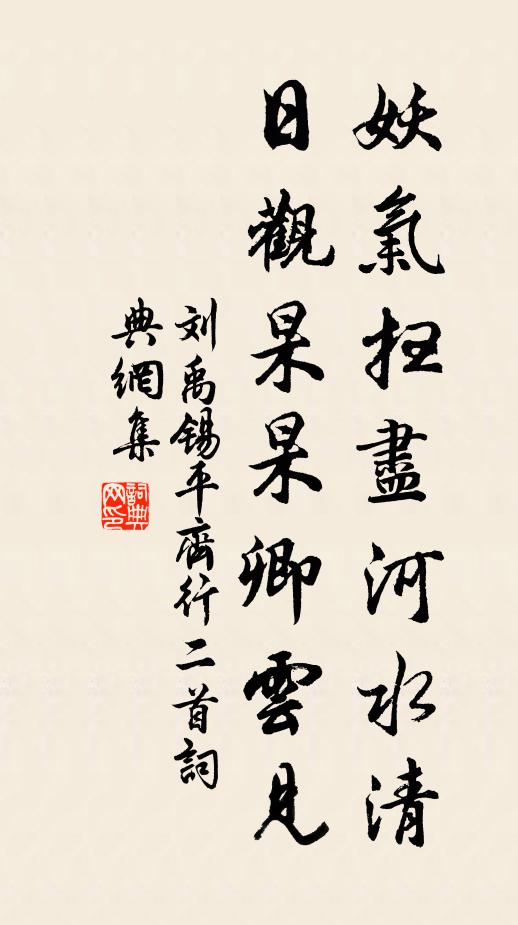 妖氣扫盡河水清
日觀杲杲卿雲見
刘禹锡平齊行二首詞
典網集
詞典网印